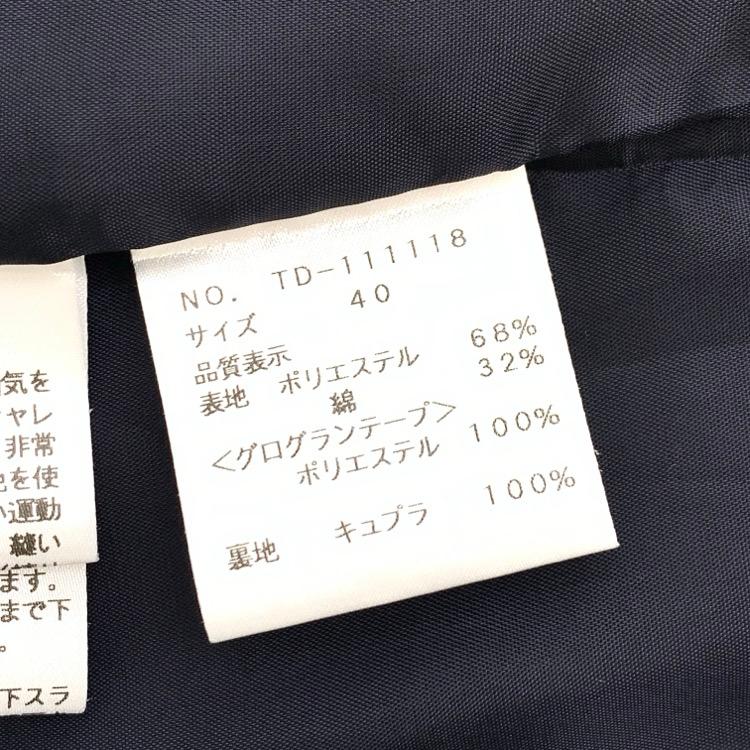 NO. TD-111118
サイズ 40
品質表示
表地 ポリエステル 68%
綿 32%
<グログランテープ>
ポリエステル 100%
裏地 キュプラ 100%
気を
ャレ
非常
を使
い運動
縫い
ます。
まで下
。
下スラ